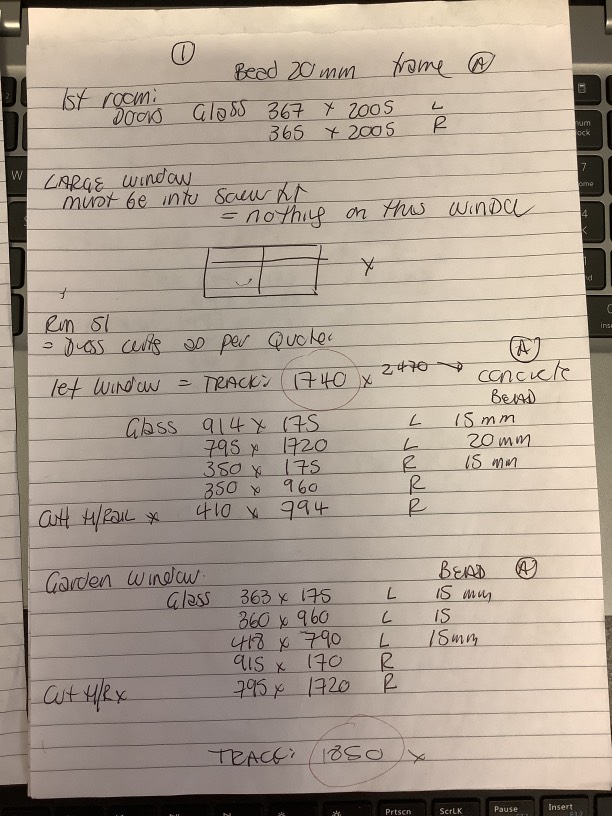 ①
Bead 20mm frame Ⓐ
1st room:
Doors Glass 367 x 2005 L
365 x 2005 R
LARGE window
must be into
= nothing on this window
x
Rm 51
= as per Quote
window = TRACK: 1740 x 2470 → Ⓐ concrete
BEAD
Glass 914 x 175 L 15mm
795 x 1720 L 20mm
350 x 175 R 15mm
350 x 960 R
Cutt H/RAIL x 410 x 794 R
Garden window. BEAD Ⓐ
Glass 363 x 175 L 15 mm
360 x 960 L 15
418 x 790 L 15mm
915 x 170 R
Cut H/R x 795 x 1720 R
TRACK: 1850 x
Prtscn
ScrLK
Pause
Insert